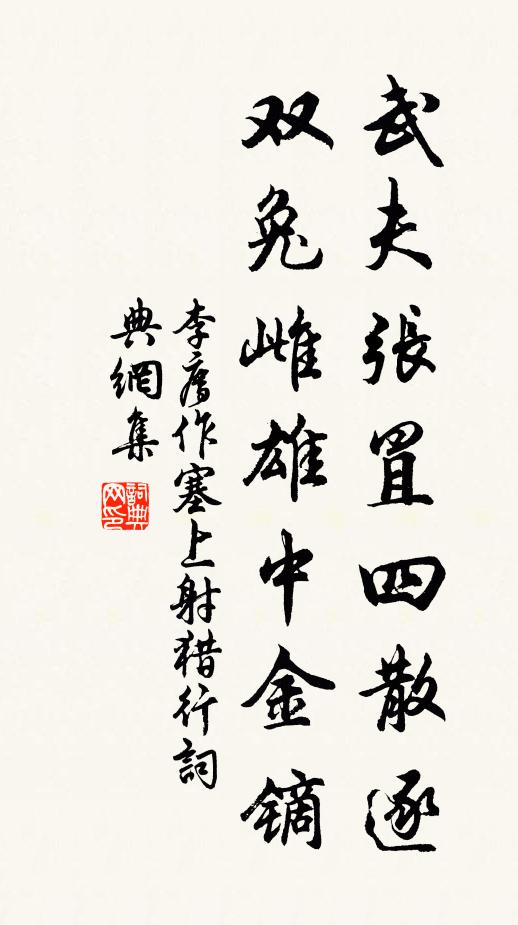 武夫張罝四散逐
双兔雌雄中金镝
李廌作塞上射猎行詞
典網集
詞典
网印